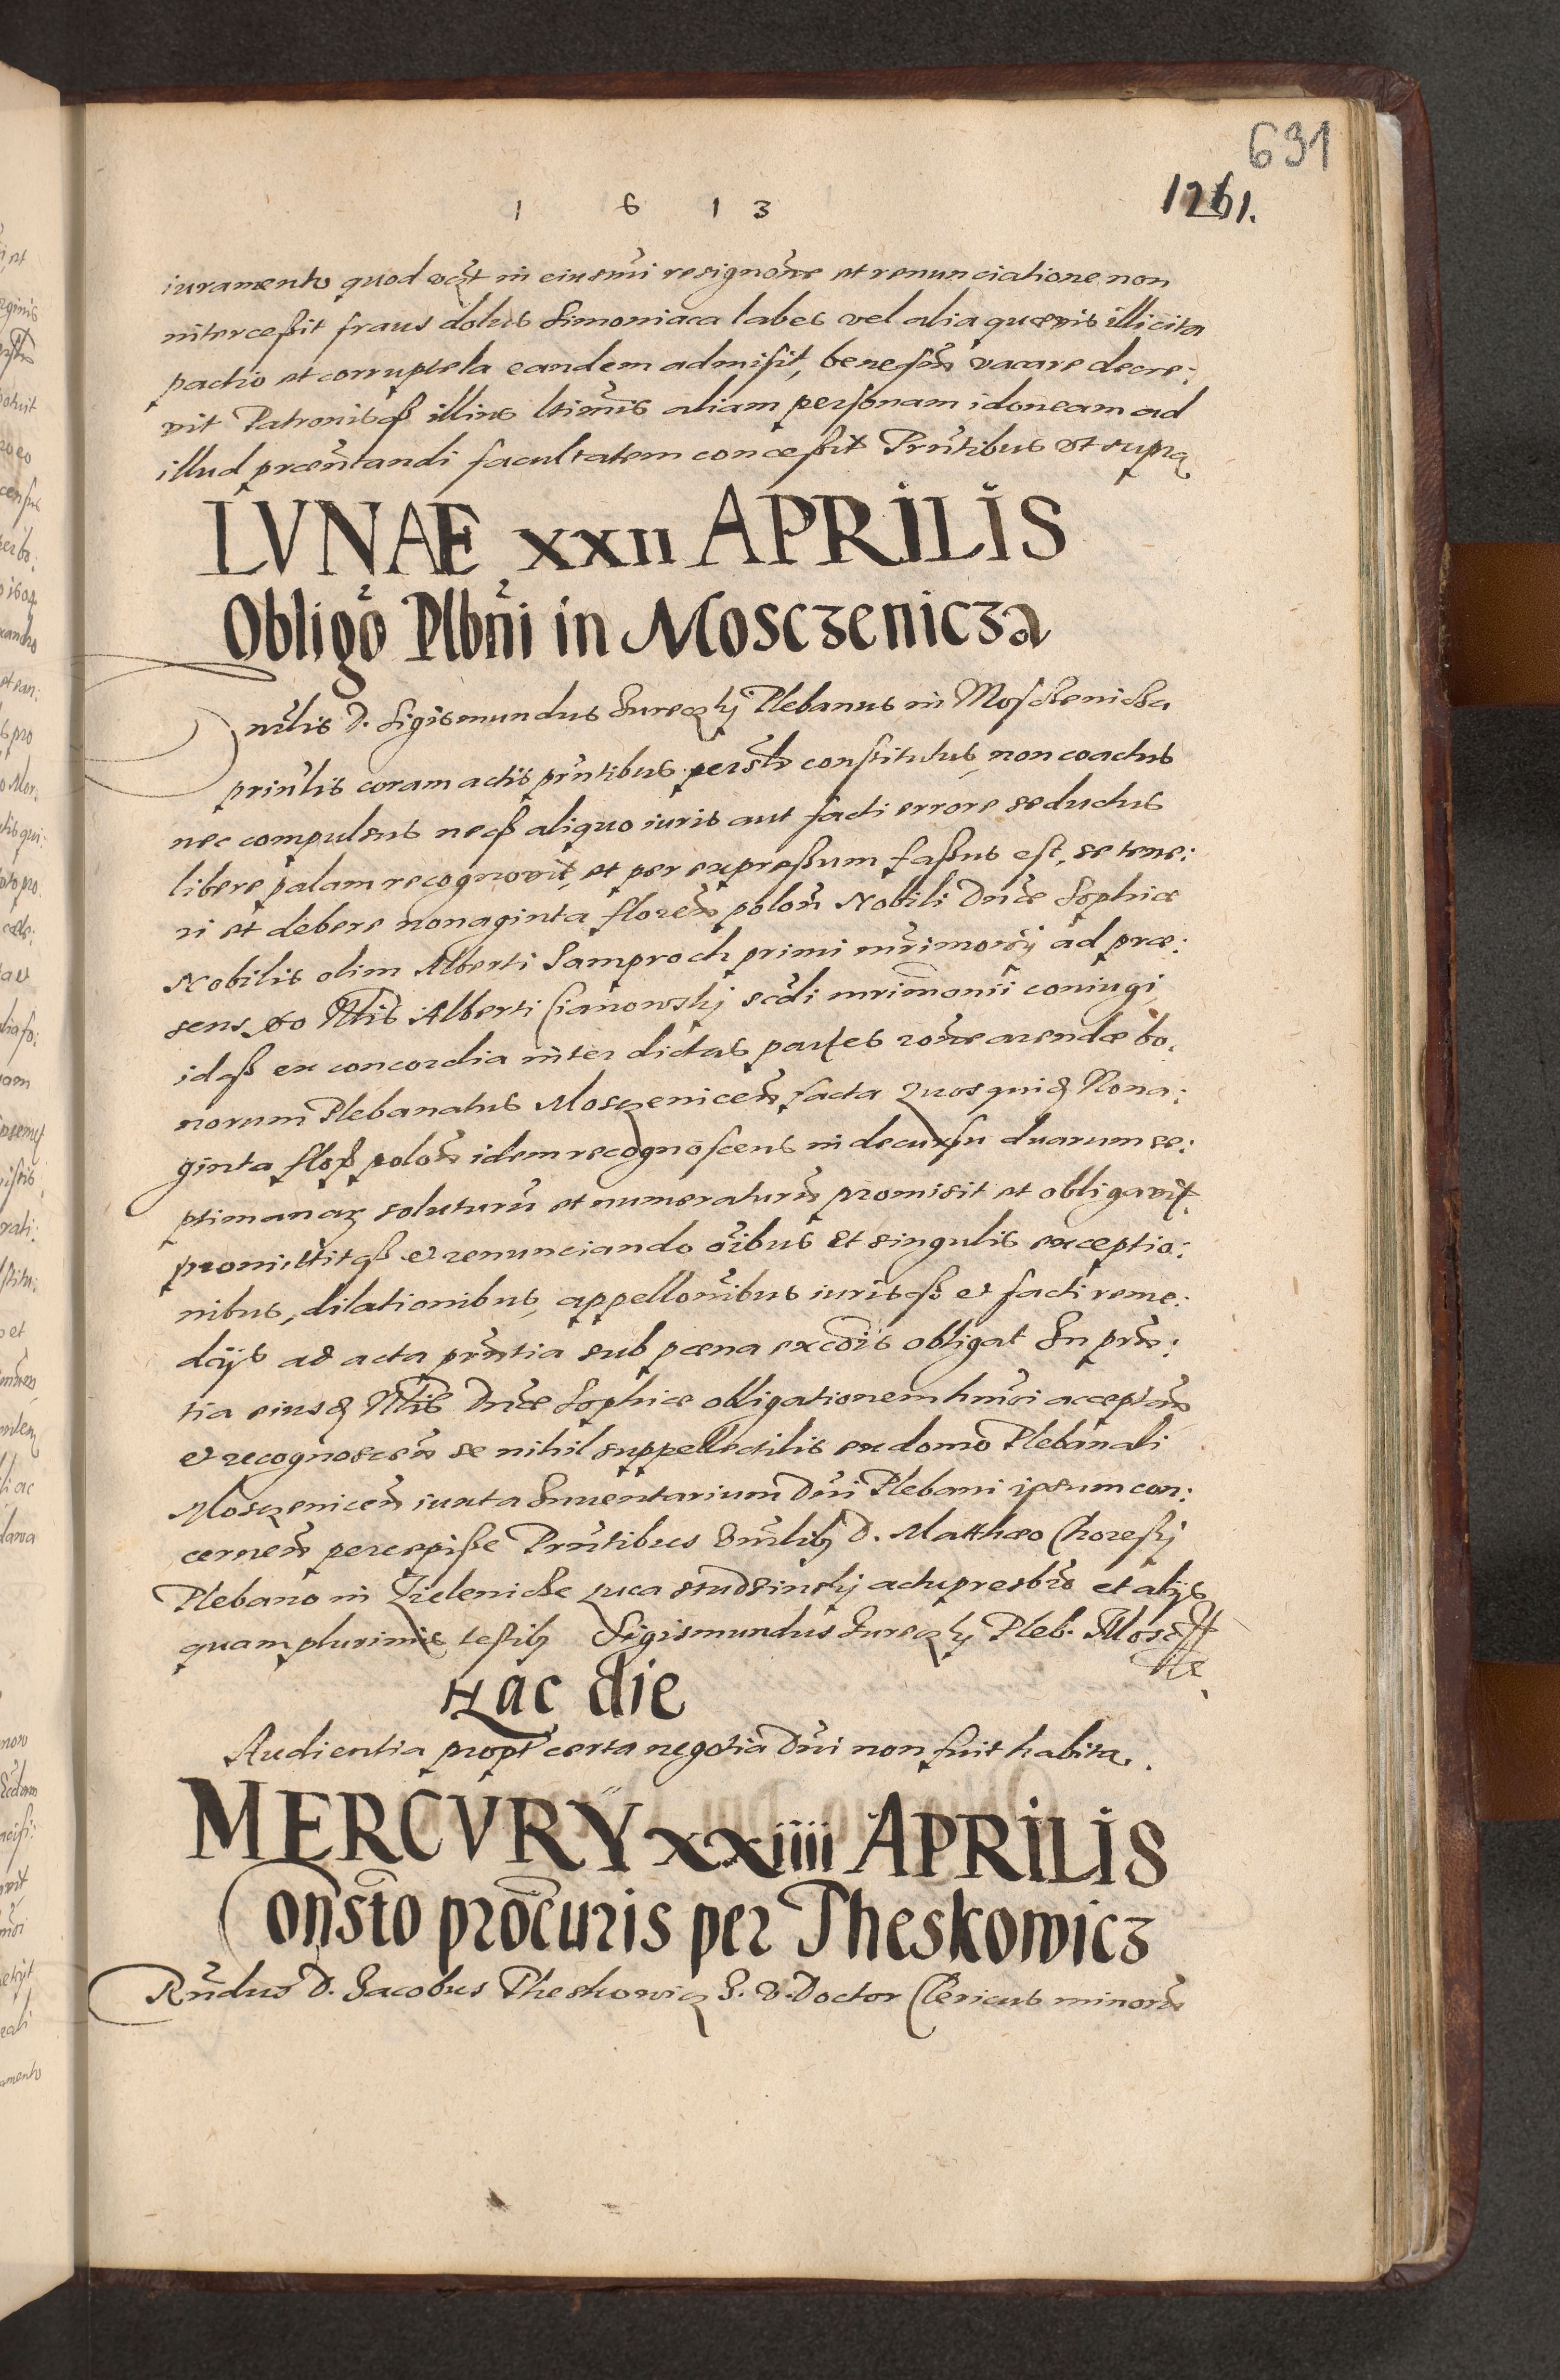 691
1261.
1 6 1 3
iuramento quod in eiusmi resignōne et renunciatione non
interceßit fraus dolus Simoniaca labes vel alia quævis illicita
pactio et corruptela eandem admisit, beneficīu vacare decre:
vit Patronisqȝ illius ltimis aliam personam idoneam ad
illud præntandi facultatem conceßit Prntibus vt supra
LVNAE XXII APRILIS
Obligō Plbni in Mosczenicza
nrlis D. Sigismundus Jureczky Plebanus in Mosczenicza
prinlis coram actis prntibus persolr constitutus, non coactus
nec compulsus neqȝ aliquo iuris aut facti errore seductus
libere palam recognovit, et per expreßum faßus est, se tene:
ri et debere nonaginta floren polon Nobili Dnæ Sophiæ
Nobilis olim Alberti Samproch primi mrimonij ad præ:
sens vo Nblis Alberti Cianowsky scdi mrimonii coniugi
idqȝ ex concordia inter dictas partes rōne arendæ bo:
norum Plebanatus Mosczenicen facta Quos quidȝ Nona:
ginta flor polon idem recognoscens in decursu duarum se:
ptimanaꝝ soluturū et numeraturū promisit et obligavit
promittitqȝ et renunciando oibus et singulis exceptio:
nibus, dilationibus, appellonibus iurisqȝ et facti reme:
dijs ad acta prntia sub pæna excōis obligat In prn:
tia eiusdȝ Nblis Dnæ Sophiæ obligationem hmoi acceptan
et recognoscen se nihil suppellectilis ex domo Plebanali
Mosczenicen iuxta Inuentarium Dni Plebani ipsum con:
cernen percepiße Prntibus D. Matthæo Choreski
Plebano in Zielenicze Luca Studzinsky actu presbro et alijs
quam plurimis testibȝ Sigismundus Jureczky Pleb. Mosc
Hac die
Audientia propt certa negotia Dni non fuit habita.
MERCVRY XXiiii APRILIS
Constō procuris per Theskowicz
Rndus D. Jacobus Theskowicz J. V. Doctor Clericus minorū